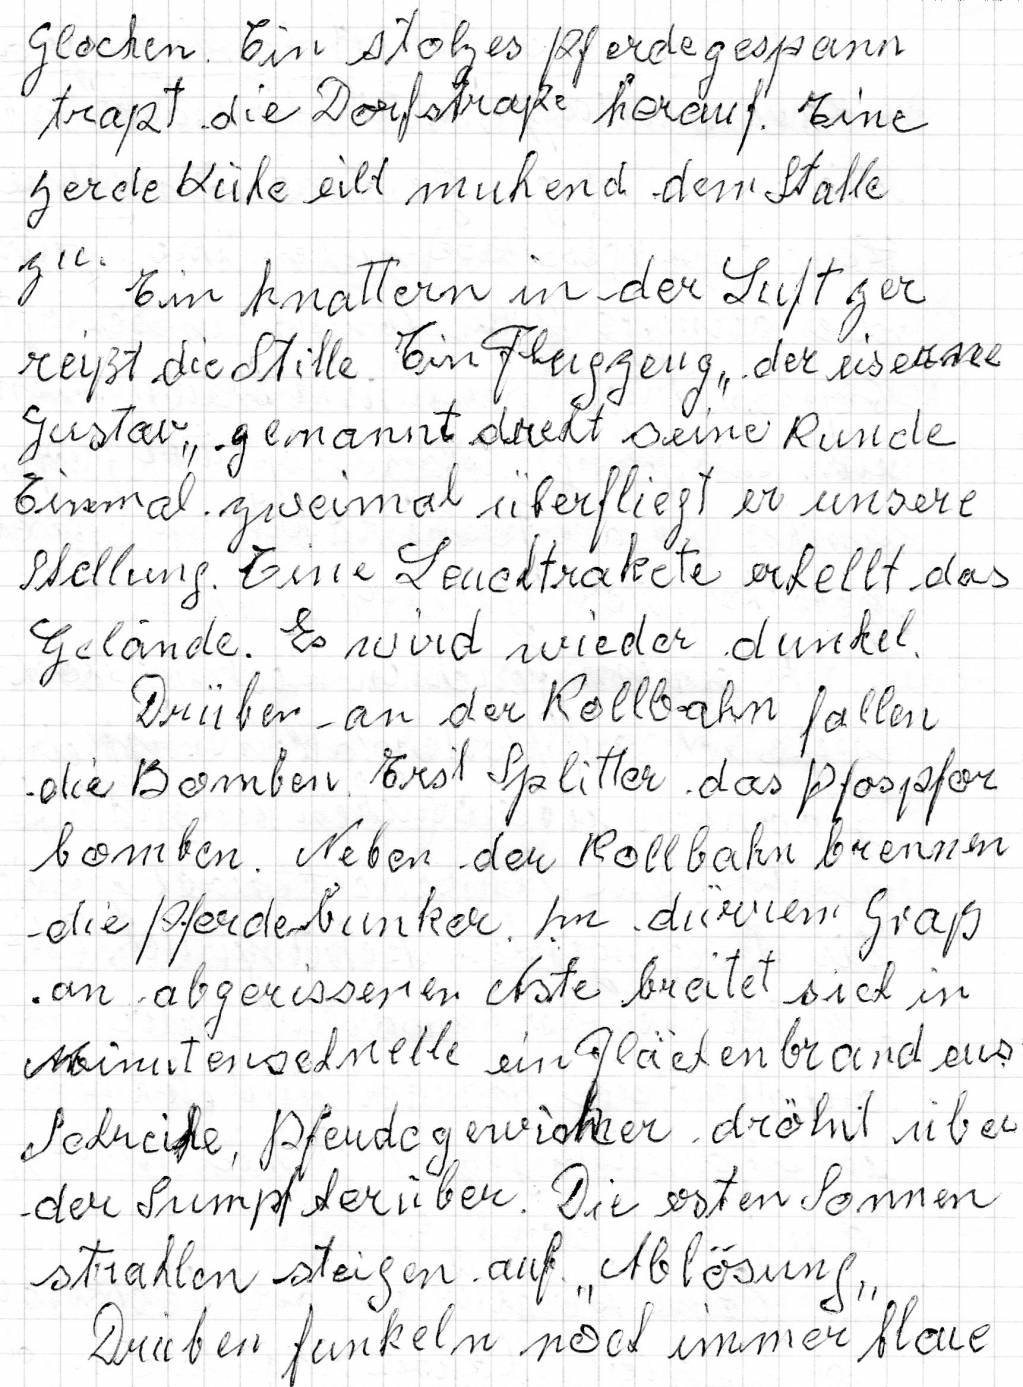 Glocken. Ein stolzes Pferdegespann
trapt die Dorfstraße herauf. Eine
Herde Kühe eilt muhend dem Stalle
zu.
Ein knattern in der Luft zer
reißt die Stille. Ein Flugzeug „der eiserne
Gustav„ genannt dreht seine Runde
Einmal zweimal überfliegt er unsere
Stellung. Eine Leuchtrakete erhellt das
Gelände. Es wird wieder dunkel.
Drüben an der Rollbahn fallen
die Bomben. Erst Splitter das Pfospfor
bomben. Neben der Rollbahn brennen
die Pferdebunker. Im dürren Graß
an abgerissenen Äste breitet sich in
Minutenschnelle ein Flächenbrand aus
Schreihe, Pferdegewicher dröhnt über
der Sumpf herüber. Die ersten Sonnen
strahlen steigen auf. „Ablösung„
Drüben funkeln noch immer blaue